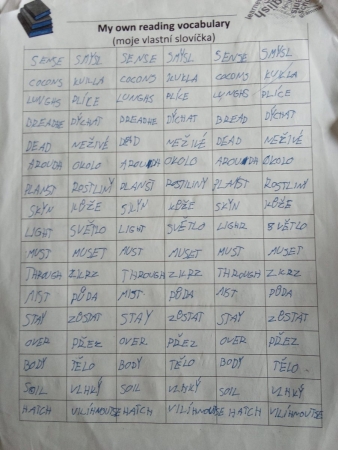 My own reading vocabulary
(moje vlastní slovíčka)
SENSE SMYSL SENSE SMYSL SENSE SMYSL
COCONS KUKLA COCONS KUKLA COCONS KUKLA
LUNGHS PLÍCE LUNGHS PLÍCE LUNGHS PLÍCE
DÝCHAT DÝCHAT BREAD DÝCHAT
DEAD NEŽIVÉ DEAD NEŽIVÉ DEAD NEŽIVÉ
OKOLO OKOLO OKOLO
PLANST ROSTLINY PLANST ROSTLINY PLANST ROSTLINY
SKÝN KŮŽE SKÝN KŮŽE SKÝN KŮŽE
LIGHT SVĚTLO LIGHT SVĚTLO LIGHT SVĚTLO
MUST MUSET MUST MUSET MUST MUSET
THROUGH ZKRZ THROUGH ZKRZ THROUGH ZKRZ
MIST PŮDA MIST PŮDA MIST PŮDA
STAY ZŮSTAT STAY ZŮSTAT STAY ZŮSTAT
OVER PŘEZ OVER PŘEZ OVER PŘEZ
BODY TĚLO BODY TĚLO BODY TĚLO
SOIL VLHKÝ SOIL VLHKÝ SOIL VLHKÝ
HATCH VILÍHNOUTSE HATCH VILÍHNOUTSE HATCH VILÍHNOUTSE